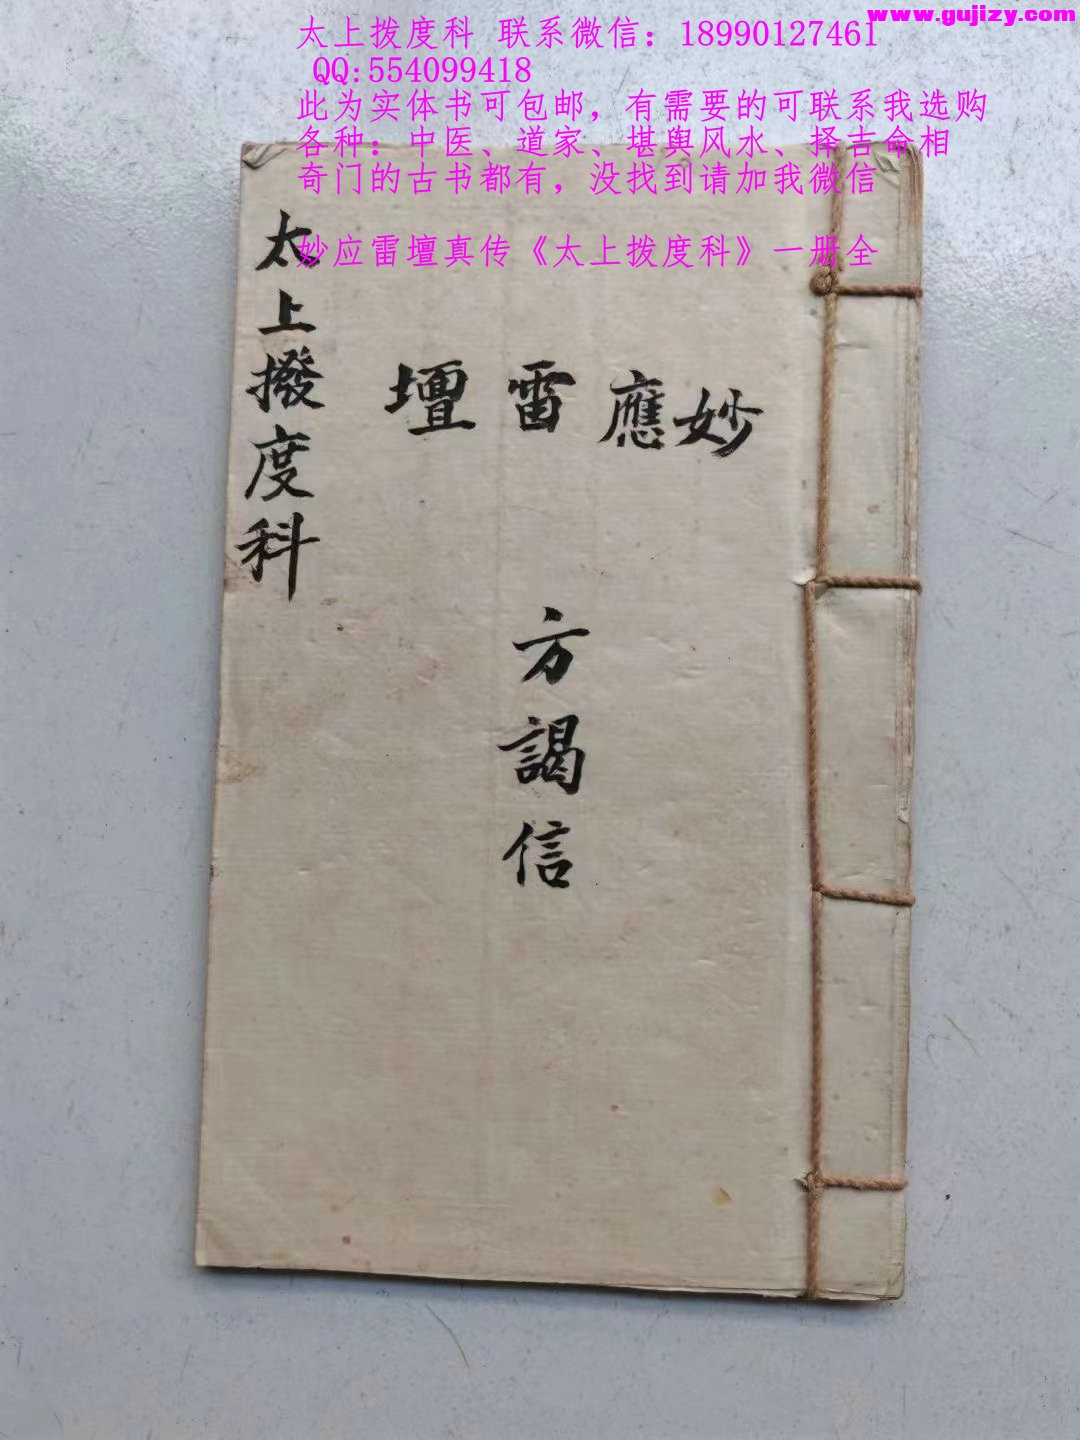 www.gujizy.com
太上拨度科 联系微信：18990127461
QQ:554099418
此为实体书可包邮，有需要的可联系我选购
各种：中医、道家、堪舆风水、择吉命相
奇门的古书都有，没找到请加我微信
妙应雷壇真传《太上拨度科》一册全
妙應雷壇
方謁信
太上撥度科